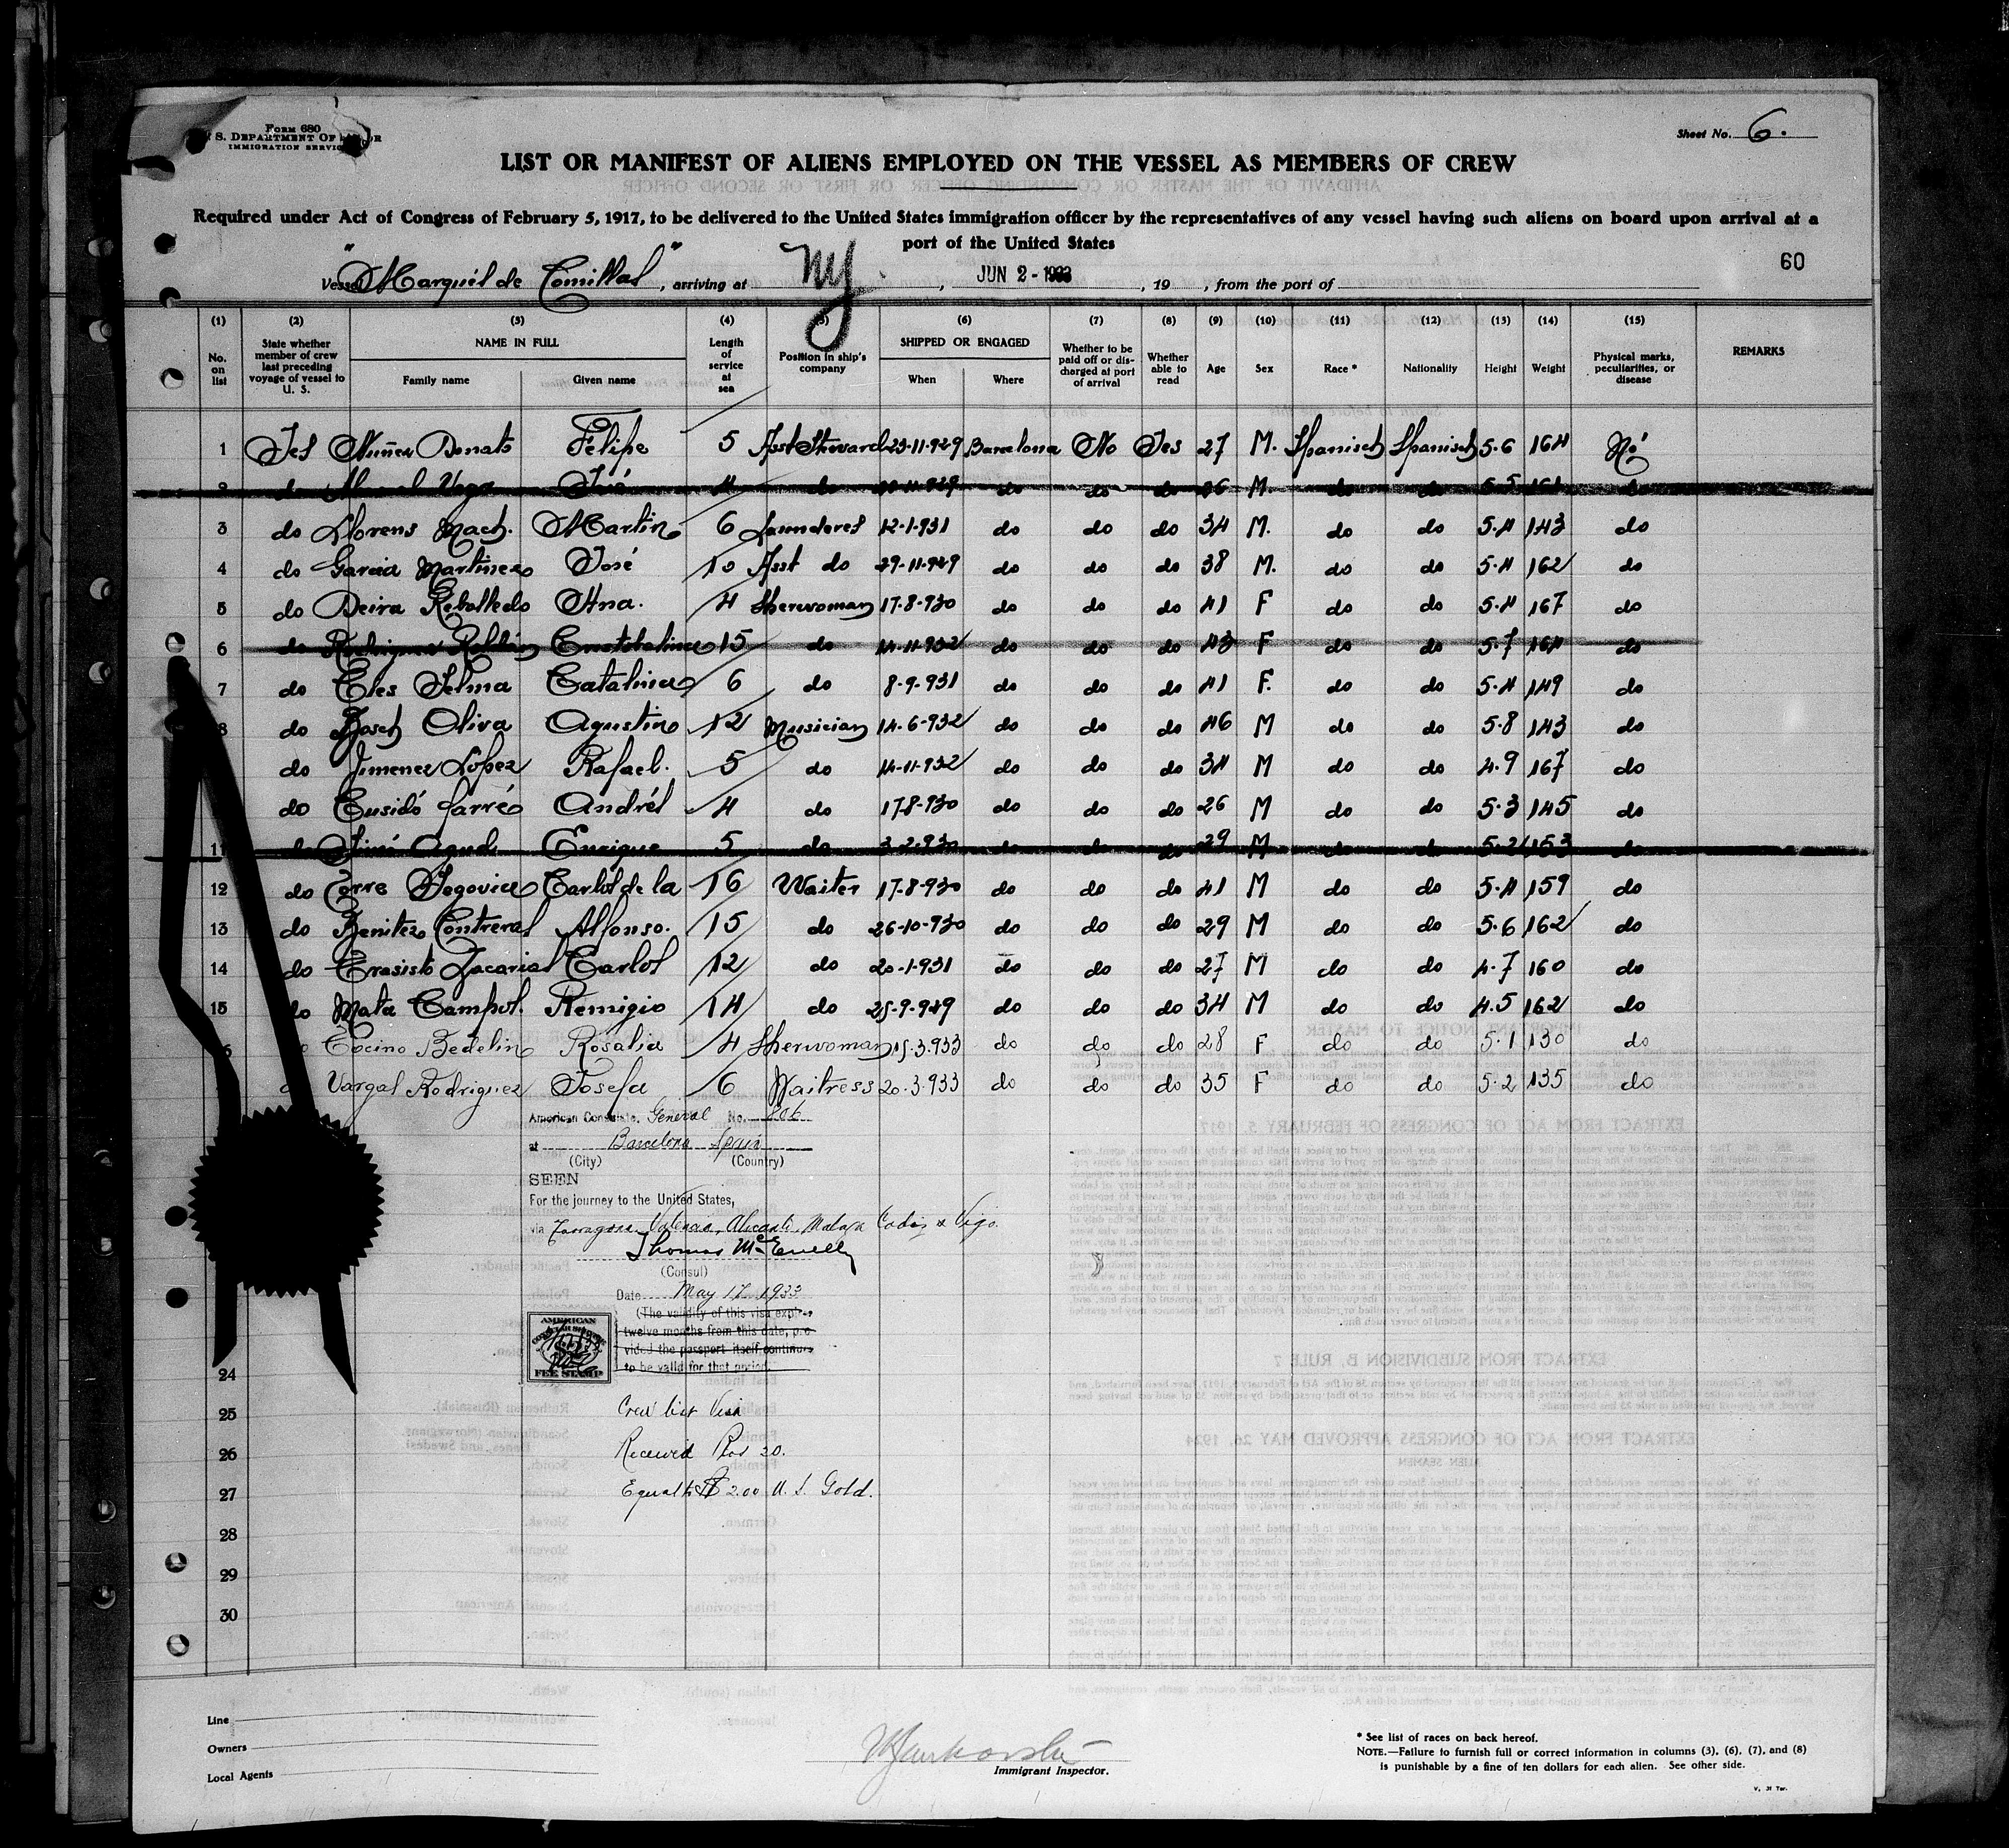 Form 680
S. DEPARTMENT OF LABOR
IMMIGRATION SERVICE
Sheet No. 6.
LIST OR MANIFEST OF ALIENS EMPLOYED ON THE VESSEL AS MEMBERS OF CREW
Required under Act of Congress of February 5, 1917, to be delivered to the United States immigration officer by the representatives of any vessel having such aliens on board upon arrival at a
port of the United States
60
Vessel "Marqués de Comillas", arriving at NY, JUN 2 - 1933, 19 , from the port of
(1) (2) (3) (4) (5) (6) (7) (8) (9) (10) (11) (12) (13) (14) (15)
No. on list State whether member of crew last preceding voyage of vessel to U. S. NAME IN FULL Family name Given name Length of service at sea Position in ship's company SHIPPED OR ENGAGED When Where Whether to be paid off or discharged at port of arrival Whether able to read Age Sex Race * Nationality Height Weight Physical marks, peculiarities, or disease REMARKS
1 Yes Nuñez Donats Felipe 5 Asst Steward 23-11-929 Barcelona No Yes 27 M. Spanisch Spanisch 5.6 164 No
2 do Vega José 4 do do do do 26 M. do do 5.5 161 do
3 do Llorens Mach. Martin 6 Launderes 12-1-931 do do do 34 M. do do 5.4 143 do
4 do Garcia Martinez José 10 Asst do 29-11-929 do do do 38 M. do do 5.4 162 do
5 do Deira Rebolledo Ana. 4 Sherwoman 17-8-930 do do do 41 F do do 5.4 167 do
6 do Rodriguez Roldán 15 do 14-11-932 do do do 43 F do do 5.7 164 do
7 do Eles Selma Catalina 6 do 8-9-931 do do do 41 F. do do 5.4 149 do
8 do Bosch Oliva Agustin 12 Musician 14-6-932 do do do 46 M do do 5.8 143 do
do Jimenez Lopez Rafael. 5 do 14-11-932 do do do 34 M do do 4.9 167 do
do Cusidó Jarré Andrés 4 do 17-8-930 do do do 26 M do do 5.3 145 do
11 do Enrique 5 do 3-2-930 do do do 29 M do do 5.2 153 do
12 do Torre Segovia Carlos de la 16 Waiter 17-8-930 do do do 41 M do do 5.4 159 do
13 do Benitez Contreras Alfonso. 15 do 26-10-930 do do do 29 M do do 5.6 162 do
14 do Erasisto Zacarias Carlos 12 do 20-1-931 do do do 27 M do do 4.7 160 do
15 do Mata Campos. Remigio 14 do 25-9-929 do do do 34 M do do 4.5 162 do
Cocino Bedelin Rosalia 4 Sherwoman 15.3.933 do do do 28 F do do 5.1 130 do
do Vargas Rodriguez Josefa 6 Waitress 20.3.933 do do do 35 F do do 5.2 135 do
American Consulate, General No. 806
at Barcelona Spain
(City) (Country)
SEEN
For the journey to the United States,
via Tarragona, Valencia, Alicante, Malaga Cadiz & Vigo.
Thomas McEnelly
(Consul)
Date May 17 1933
(The validity of this visa expires
twelve months from this date, pro
vided the passport itself continues
to be valid for that period.
AMERICAN
FEE STAMP
24
25 Crew list Visa
26 Received Ptas 20.
27 Equal to $2.00 U. S. Gold.
28
29
30
Line
Owners
Local Agents
Immigrant Inspector.
* See list of races on back hereof.
NOTE.—Failure to furnish full or correct information in columns (3), (6), (7), and (8)
is punishable by a fine of ten dollars for each alien. See other side.